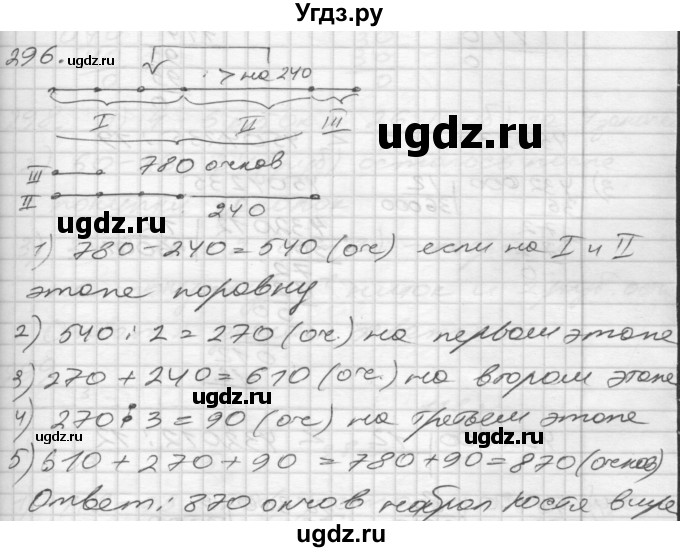 Угдз.ру
296.
ugdz.ru
> на 240
I II III
ugdz.ru
780 очков
III
II
240
ugdz.ru
ugdz.ru
1) 780 - 240 = 540 (оч) если на I и II
этапе поровну
ugdz.ru
2) 540 : 2 = 270 (оч.) на первом этапе
3) 270 + 240 = 510 (оч.) на втором этапе
4) 270 : 3 = 90 (оч) на третьем этапе
ugdz.ru
ugdz.ru
5) 510 + 270 + 90 = 780 + 90 = 870 (очков)
Ответ: 870 очков набрал Костя в игре
ugdz.ru